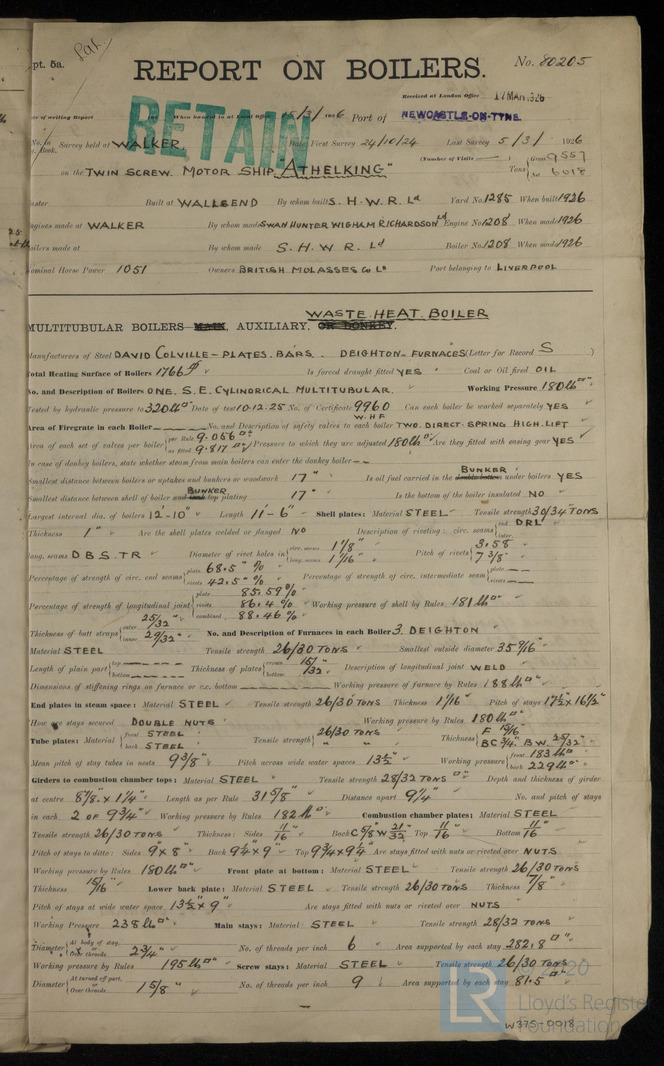 pt. 5a.
REPORT ON BOILERS.
No. 80205
Received at London Office 17 MAR 1926
RETAIN
of writing Report When handed in at Local Office 15/3/1926 Port of NEWCASTLE-ON-TYNE.
No. in Survey held at WALKER. Date, First Survey 24/10/24 Last Survey 5/3/1926
Book.
(Number of Visits )
on the "TWIN SCREW. MOTOR SHIP. ATHELKING" Tons Gross 9557 Net 6018
Built at WALLSEND By whom built S. H. W. R. Ld Yard No. 1285 When built 1926
ngines made at WALKER By whom made SWAN HUNTER WIGHAM RICHARDSON Ld Engine No. 1208 When made 1926
oilers made at By whom made S. H. W. R. Ld Boiler No. 1208 When made 1926
ominal Horse Power 1051 Owners BRITISH MOLASSES Co Ld Port belonging to LIVERPOOL
WASTE HEAT BOILER
MULTITUBULAR BOILERS MAIN, AUXILIARY, OR DONKEY.
Manufacturers of Steel DAVID COLVILLE - PLATES. BARS. DEIGHTON - FURNACES (Letter for Record S )
Total Heating Surface of Boilers 1766 Is forced draught fitted YES Coal or Oil fired OIL
No. and Description of Boilers ONE. S.E. CYLINDRICAL MULTITUBULAR. Working Pressure 180 lb□"
Tested by hydraulic pressure to 320 lb□" Date of test 10.12.25 No. of Certificate 9960 Can each boiler be worked separately YES
W.H.F
Area of Firegrate in each Boiler No. and Description of safety valves to each boiler TWO. DIRECT. SPRING HIGH. LIFT
Area of each set of valves per boiler per Rule 9.056 □" as fitted 9.817 □" Pressure to which they are adjusted 180 lb□" Are they fitted with easing gear YES
In case of donkey boilers, state whether steam from main boilers can enter the donkey boiler
Smallest distance between boilers or uptakes and bunkers or woodwork 17" Is oil fuel carried in the double bottom BUNKER under boilers YES
Smallest distance between shell of boiler and tank BUNKER top plating 17" Is the bottom of the boiler insulated NO
Largest internal dia. of boilers 12'-10" Length 11'-6" Shell plates: Material STEEL Tensile strength 30/34 TONS
Thickness 1" Are the shell plates welded or flanged NO Description of riveting: circ. seams end DRL inter.
long. seams D.B.S. TR Diameter of rivet holes in circ. seams 1 1/8" long. seams 1 1/16" Pitch of rivets 3.58 7 3/8"
Percentage of strength of circ. end seams plate 68.5 % rivets 42.5 % Percentage of strength of circ. intermediate seam plate rivets
Percentage of strength of longitudinal joint plate 85.59 % rivets 86.4 % combined 88.46 % Working pressure of shell by Rules 181 lb□"
Thickness of butt straps outer 25/32" inner 29/32" No. and Description of Furnaces in each Boiler 3. DEIGHTON
Material STEEL Tensile strength 26/30 TONS Smallest outside diameter 35 9/16"
Length of plain part top bottom Thickness of plates crown bottom 15/32" Description of longitudinal joint WELD
Dimensions of stiffening rings on furnace or c.c. bottom Working pressure of furnace by Rules 188 lb□"
End plates in steam space: Material STEEL Tensile strength 26/30 TONS Thickness 1 1/16" Pitch of stays 17 1/2 x 16 1/2"
How are stays secured DOUBLE NUTS Working pressure by Rules 180 lb□"
Tube plates: Material front STEEL back STEEL Tensile strength 26/30 TONS " " Thickness F 15/16" BC 3/4" B.W. 25/32"
Mean pitch of stay tubes in nests 9 3/8" Pitch across wide water spaces 13 1/2" Working pressure front 183 lb□" back 229 lb□"
Girders to combustion chamber tops: Material STEEL Tensile strength 28/32 TONS □" Depth and thickness of girder
at centre 8 7/8" x 1 1/4" Length as per Rule 31 5/8" Distance apart 9 1/4" No. and pitch of stays
in each 2 OF 9 3/4" Working pressure by Rules 182 lb□" Combustion chamber plates: Material STEEL
Tensile strength 26/30 TONS Thickness: Sides 11/16" Back C 5/8 W 21/32" Top 11/16" Bottom 11/16"
Pitch of stays to ditto: Sides 9" x 8" Back 9 1/4" x 9" Top 9 3/4 x 9 1/4" Are stays fitted with nuts or riveted over NUTS
Working pressure by Rules 180 lb□" Front plate at bottom: Material STEEL Tensile strength 26/30 TONS
Thickness 15/16" Lower back plate: Material STEEL Tensile strength 26/30 TONS Thickness 7/8"
Pitch of stays at wide water space 13 1/2" x 9" Are stays fitted with nuts or riveted over NUTS
Working Pressure 238 lb□" Main stays: Material STEEL Tensile strength 28/32 TONS
Diameter At body of stay, Over threads 2 3/4" No. of threads per inch 6 Area supported by each stay 282.8 □"
Working pressure by Rules 195 lb□" Screw stays: Material STEEL Tensile strength 26/30 TONS
Diameter At turned off part, Over threads 1 5/8" No. of threads per inch 9 Area supported by each stay 81.5 □"
LR
Lloyd's Register
Foundation
W375-0018